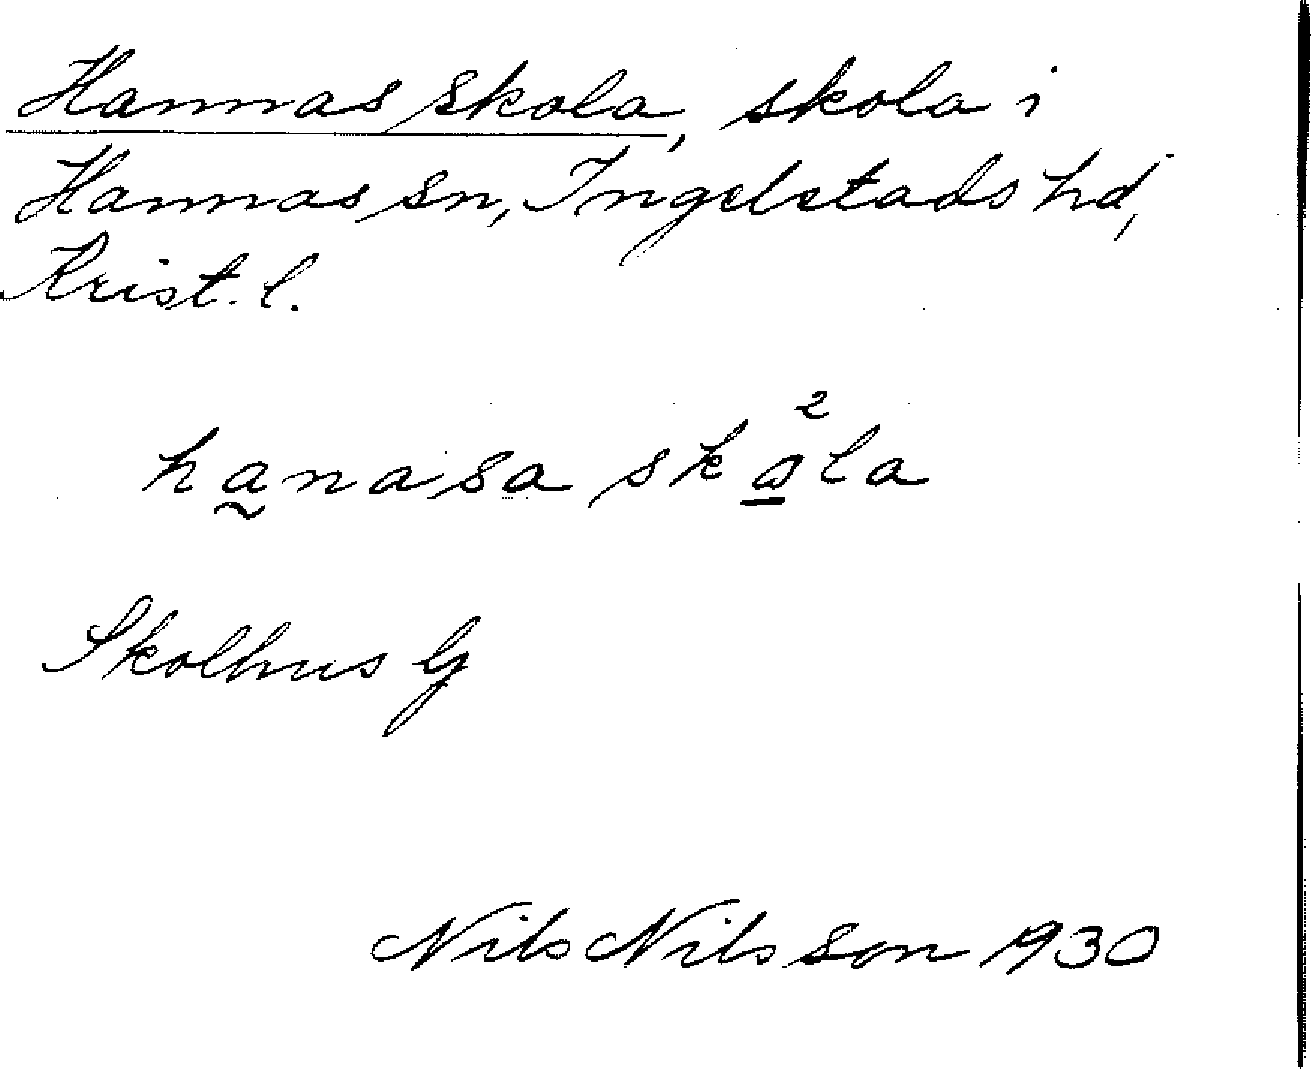 Hannas skola, skola i
Hannas sn, Ingelstads hd,
Krist. l.
hanasa skåla
Skolhus G
Nils Nilsson 1930